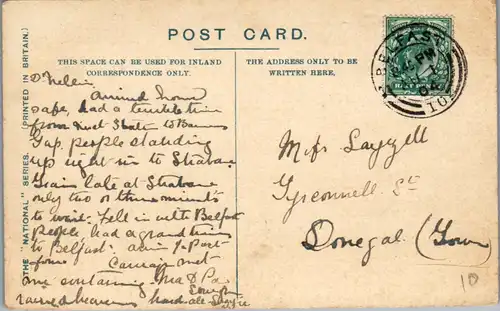 POST CARD.
THIS SPACE CAN BE USED FOR INLAND
CORRESPONDENCE ONLY.
THE ADDRESS ONLY TO BE
WRITTEN HERE.
THE "NATIONAL" SERIES.
(PRINTED IN BRITAIN.)
BELFAST
PM
HALFPENNY
Dr Nellie
Arrived home
safe, had a terrible time
from to Barnes
Gap, people standing
up right us to Strabane
Train late at Strabane
only two or three minutes
to wait. Fell in with Belfast
people, had a grand time
to Belfast. at Port-
Carriage met
me containing Ma & Pa
raised heavens
Miss
Tyrconnell St
Donegal (Town)
10